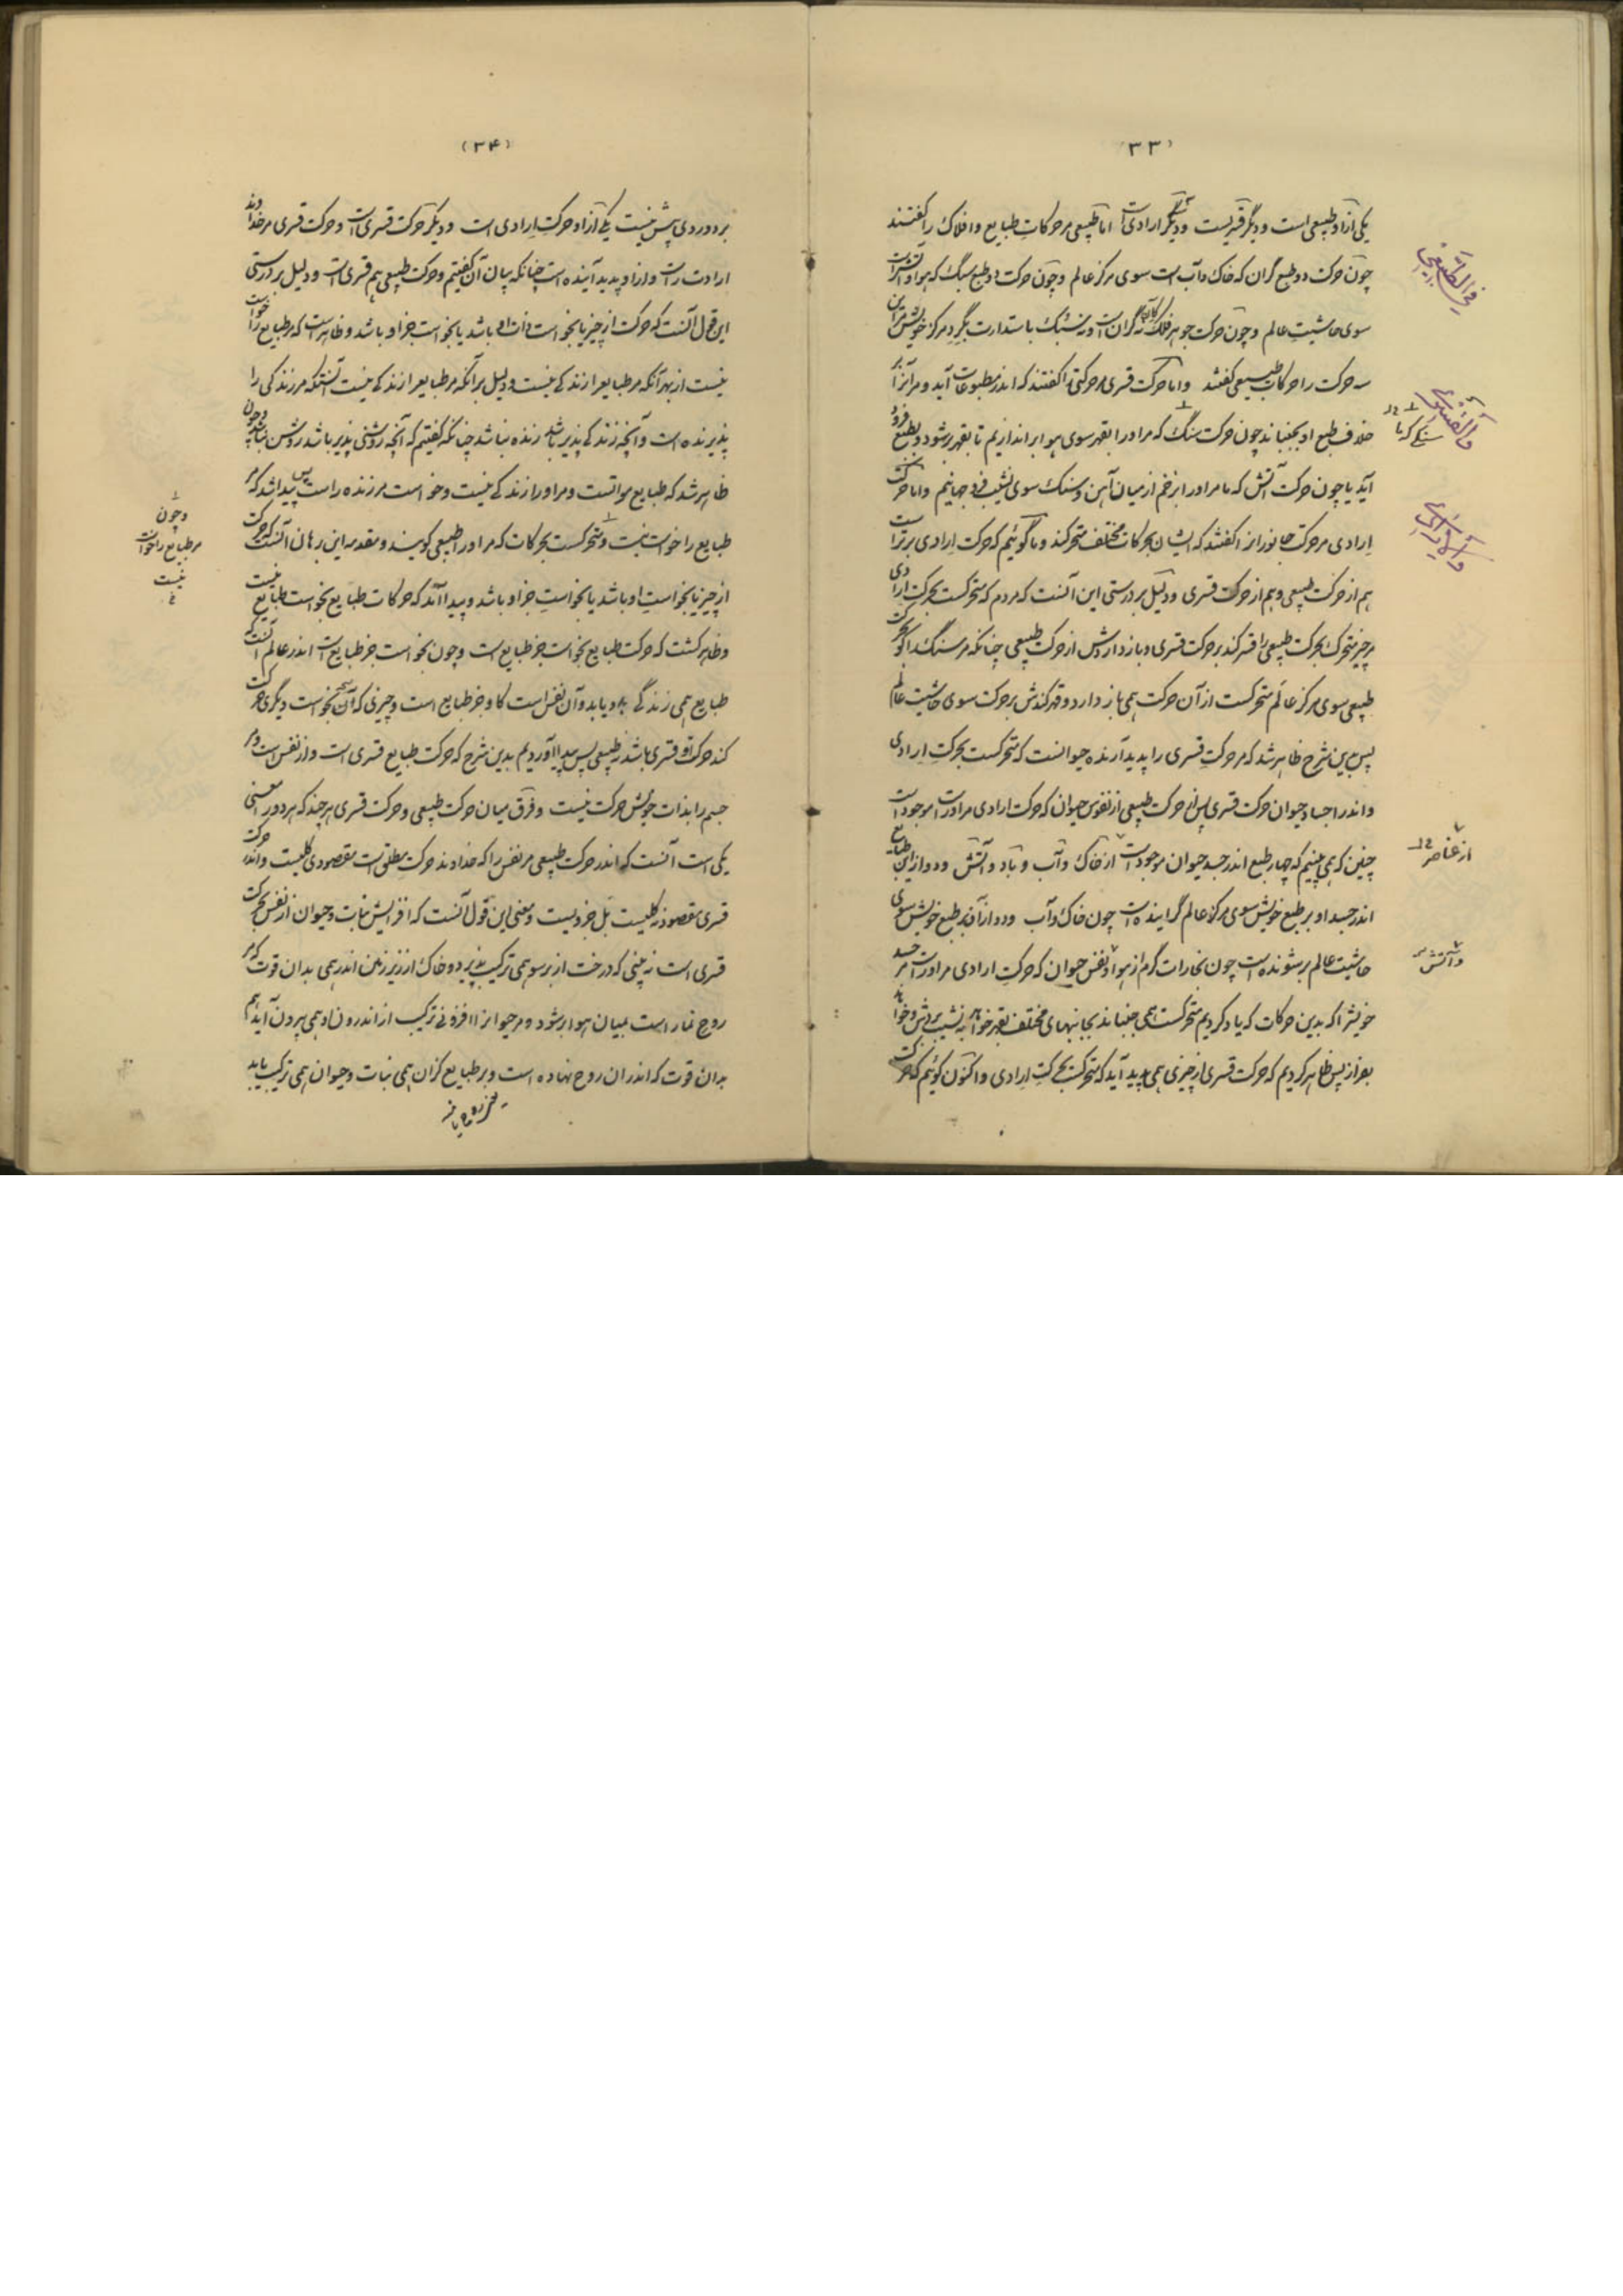 (۳۳)
یکی ازاو طبیعی است و دیگر قسریست و دیگر ارادیست اما طبیعی مر حرکات طبایع و افلاک را گفتند
چون حرکت دو طبع گران که خاک و آب است سوی مرکز عالم و چون حرکت دو طبع سبک که هوا و آتش است
سوی حاشیت عالم و چون حرکت جوهر فلک کان نه گران است و نه سبک باستدارت بگرد مرکز خویش مر این
سه حرکت را حرکات طبیعی گفتند و اما حرکت قسری مر حرکتی را گفتند که اندر مطبوعات آید و مر آنرا بر
خلاف طبع او بجنباند چون حرکت سنگ که مر اورا بقهر سوی هوا بر اندازیم تا بقهر بر شود و بطبع فرود
آید یا چون حرکت آتش که ما مر اورا بزخم از میان آهن و سنگ سوی نشیب فرو جهانیم و اما حرکت
ارادی مر حرکت جانور را گفتند که ایشان بحرکات مختلف متحرکند و ما گوئیم که حرکت ارادی برتر است
هم از حرکت طبیعی و هم از حرکت قسری و دلیل بر درستی این آنست که مردم که متحرکست بحرکت ارادی
مر چیز متحرک بحرکت طبیعی را قسر کند بر حرکت قسری و باز داردش از حرکت طبیعی چنانکه مر سنگ را کو بحرکت
طبیعی سوی مرکز عالم متحرکست از آن حرکت همی باز دارد و قهر کندش بر حرکت سوی حاشیت عالم
پس بدین شرح ظاهر شد که مر حرکت قسری را پدید آرنده حیوانست که متحرکست بحرکت ارادی
و اندر اجساد حیوان حرکت قسری پس از حرکت طبیعی از نفوس حیوان که حرکت ارادی مر اوراست موجود است
چنین که همی بینیم که چهار طبع اندر جسد حیوان موجود است از خاک و آب و باد و آتش و دو از این طبایع
اندر جسد او بر طبع خویش سوی مرکز عالم گراینده است چون خاک و آب و دو از آن بر طبع خویش سوی
حاشیت عالم بر شونده است چون بخارات گرم از هوا و نفس حیوان که حرکت ارادی مر اوراست مر جسد
خویش را که بدین حرکات که یاد کردیم متحرکست همی جنباند بجانبهای مختلف بقهر خواهد به نشیب بردش و خواهد
بفراز پس ظاهر کردیم که حرکت قسری از چیزی همی پدید آید که متحرکست بحرکت ارادی و اکنون گوئیم که حرکت
فی الطبیعی
والقسری
سنگی که ما
والارادی
از عناصر
و آتش
(۳۴)
بر دو روی بیش نیست یکی ازاو حرکت ارادی است و دیگر حرکت قسری است و حرکت قسری مر خداوند
ارادت راست و ازاو پدید آینده است چنانکه بیان آن گفتیم و حرکت طبیعی هم قسری است و دلیل بر درستی
این قول آنست که حرکت از چیز یا بخواست ذات او باشد یا بخواست جز او باشد و ظاهر است که مر طبایع را خواست
نیست از بهر آنکه مر طبایع را زندگی نیست و دلیل بر آنکه مر طبایع را زندگی نیست آنستکه مر زندگی را
پذیرنده است و آنچه زندگی پذیر باشد زنده نباشد چنانکه گفتیم که آنچه روشنی پذیر باشد روشن نباشد و چون
ظاهر شد که طبایع مواتست و مر اورا زندگی نیست و خواست مر زنده راست پس پیدا شد که مر
طبایع را خواست نیست و متحرکست بحرکات که مر اورا طبیعی گویند و مقدمه این برهان آنست که حرکت
از چیز یا بخواست او باشد یا بخواست جز او باشد و پیدا آمد که حرکات طبایع بخواست طبایع نیست
و ظاهر گشت که حرکت طبایع بخواست جز طبایع است و چون بخواست جز طبایع است اندر عالم آنست که
طبایع همی زندگی بدو یابد و آن نفس است کاو جز طبایع است و چیزی که آن بخواست دیگری حرکت
کند حرکت او قسری باشد نه طبیعی پس پیدا آوردیم بدین شرح که حرکت طبایع قسری است و از نفس است و مر
جسم را بذات خویش حرکت نیست و فرق میان حرکت طبیعی و حرکت قسری هر چند که هر دو در معنی
یکی است آنست که اندر حرکت طبیعی مر نفس را که خداوند حرکت مطلق است مقصودی کلیست و اندر حرکت
قسری مقصود نه کلیست بل جزویست و معنی این قول آنست که افزایش نبات و حیوان از نفس بحرکت
قسری است نه بینی که درخت از بر سو همی ترکیب پذیرد و خاک از زیر زمین اندر همی بدان قوت که مر
روح نما راست بمیان هوا بر شود و مر حیوانرا افزونی ترکیب از اندرون او همی بیرون آید هم
بدان قوت که اندر ان روح نهاده است و بر طبایع گران همی نبات و حیوان همی ترکیب یابد
و چون
مر طبایع را خواست
نیست